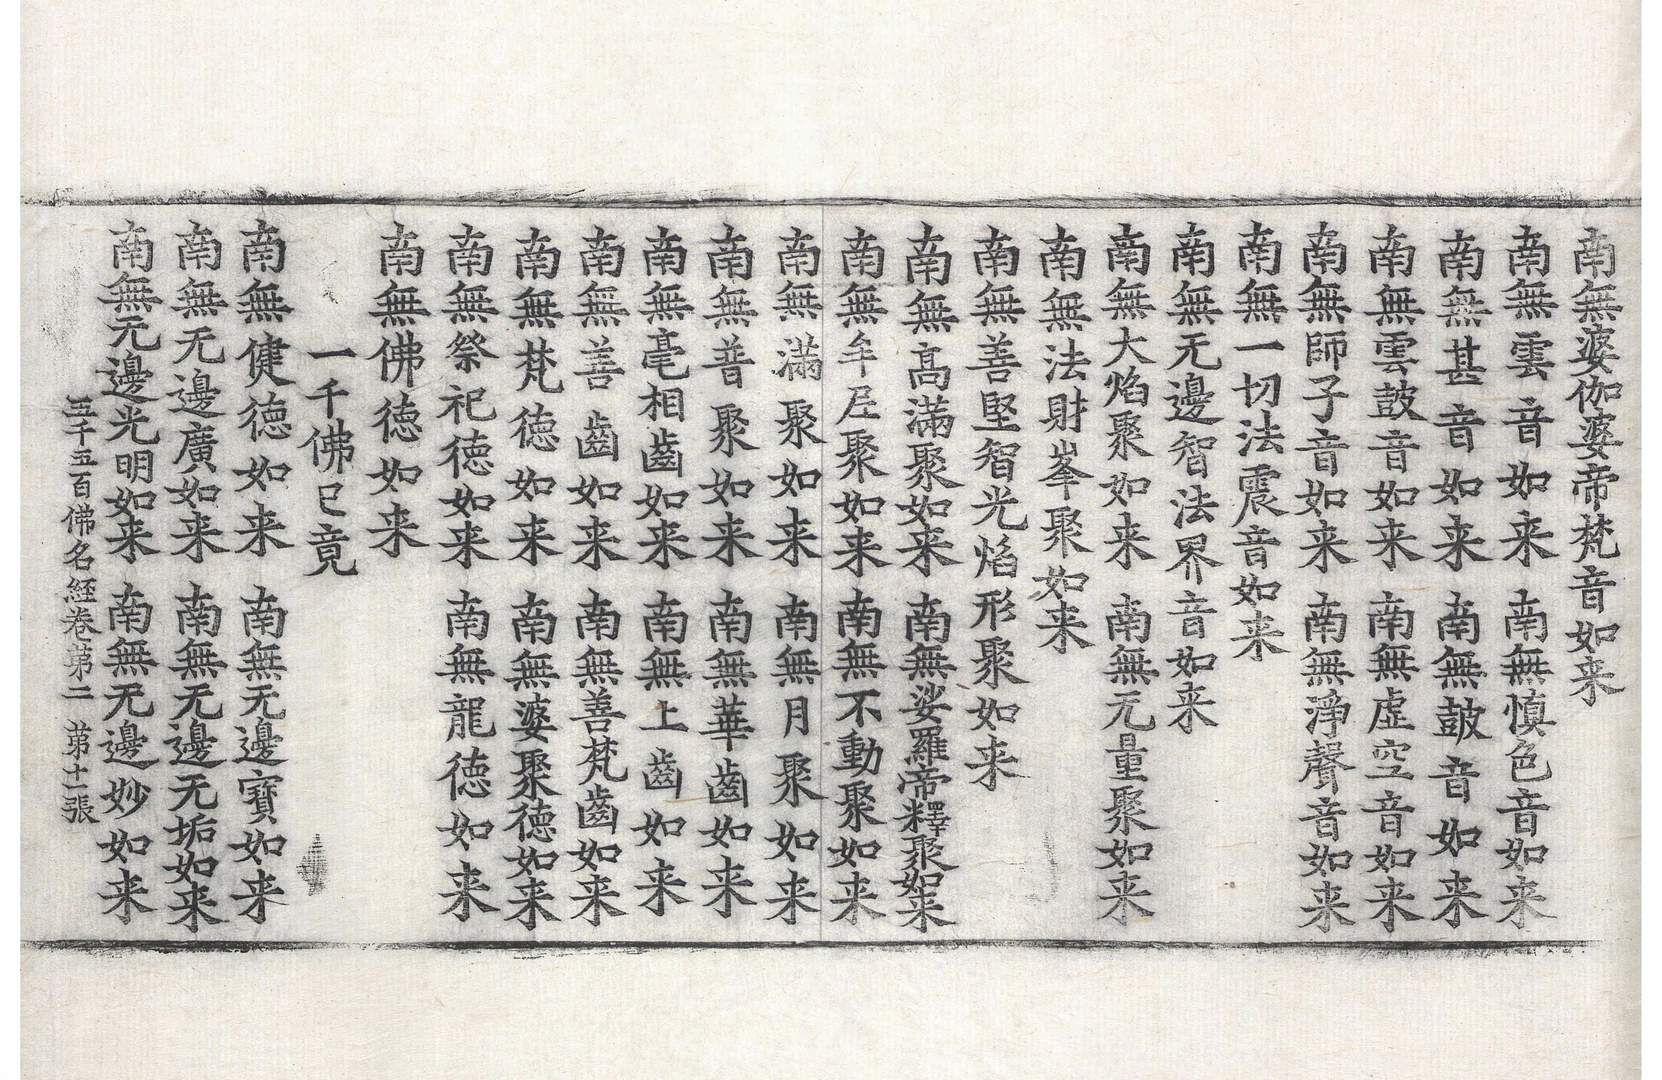 南無婆伽婆帝梵音如来
南無雲音如来 南無慎色音如来
南無甚音如来 南無鼓音如来
南無雲鼓音如来 南無虛空音如来
南無師子音如来 南無淨聲音如来
南無一切法震音如来
南無无邊智法界音如来
南無大焰聚如来 南無无量聚如来
南無法財峯聚如来
南無善堅智光焰形聚如来
南無高滿聚如来 南無娑羅帝釋聚如来
南無牟尼聚如来 南無不動聚如来
南無滿聚如来 南無月聚如来
南無普聚如来 南無華齒如来
南無毫相齒如来 南無上齒如来
南無善齒如来 南無善梵齒如来
南無梵德如来 南無婆聚德如来
南無祭祀德如来 南無龍德如来
南無佛德如来
一千佛已竟
南無健德如来 南無无邊寶如来
南無无邊廣如来 南無无邊无垢如来
南無无邊光明如来 南無无邊妙如来
五千五百佛名經卷第二 第十一張